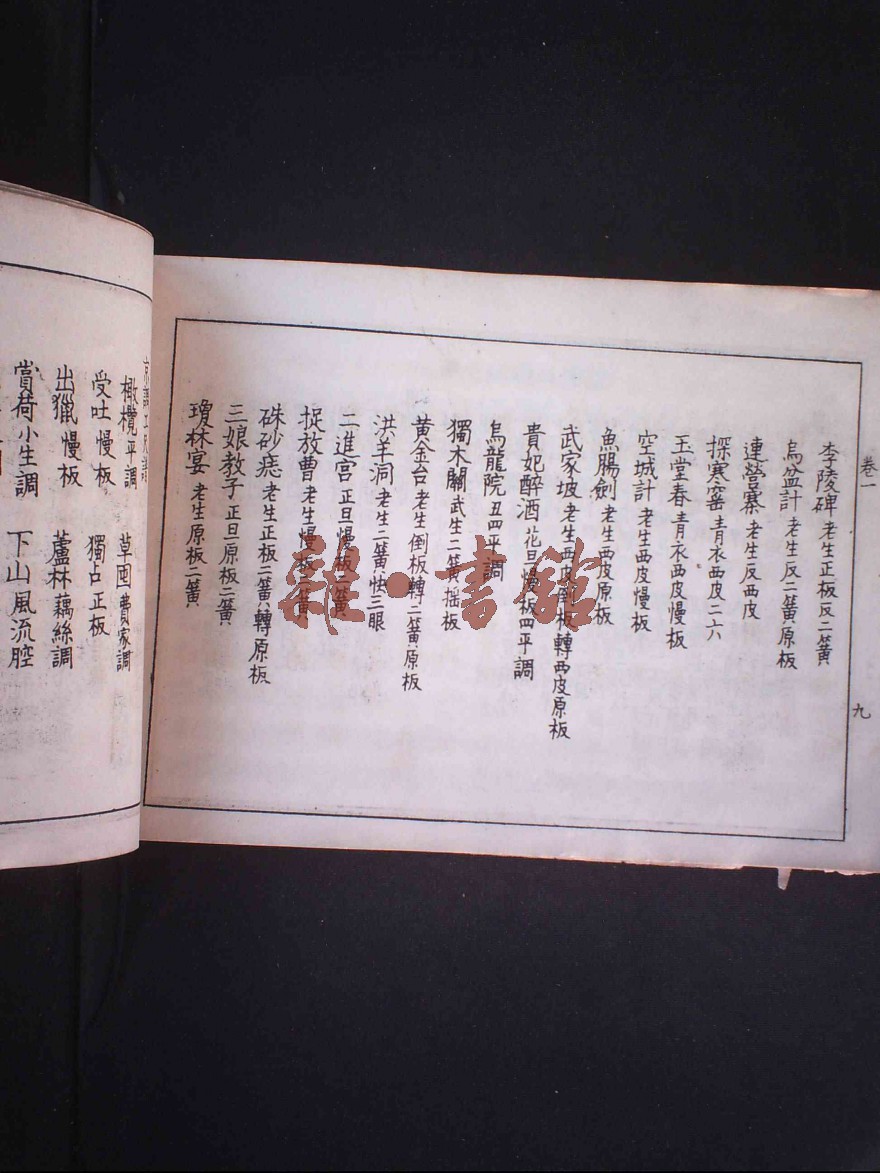 卷二
九
李陵碑 老生正板反二簧
烏盆計 老生反二簧原板
連營寨 老生反西皮
探寒窑 青衣西皮二六
玉堂春 青衣西皮慢板
空城計 老生西皮慢板
魚腸劍 老生西皮原板
武家坡 老生西皮倒板轉西皮原板
貴妃醉酒 花旦慢板四平調
烏龍院 丑四平調
獨木關 武生二簧摇板
黃金台 老生倒板轉二簧原板
洪羊洞 老生二簧快三眼
二進宮 正旦慢板二簧
捉放曹 老生慢板二簧
硃砂痣 老生正板二簧轉原板
三娘教子 正旦原板二簧
瓊林宴 老生原板二簧
橄欖平調 草囤費家調
受吐慢板 獨占正板
出獵慢板 蘆林藕絲調
賞荷小生調 下山風流腔
雜·書館